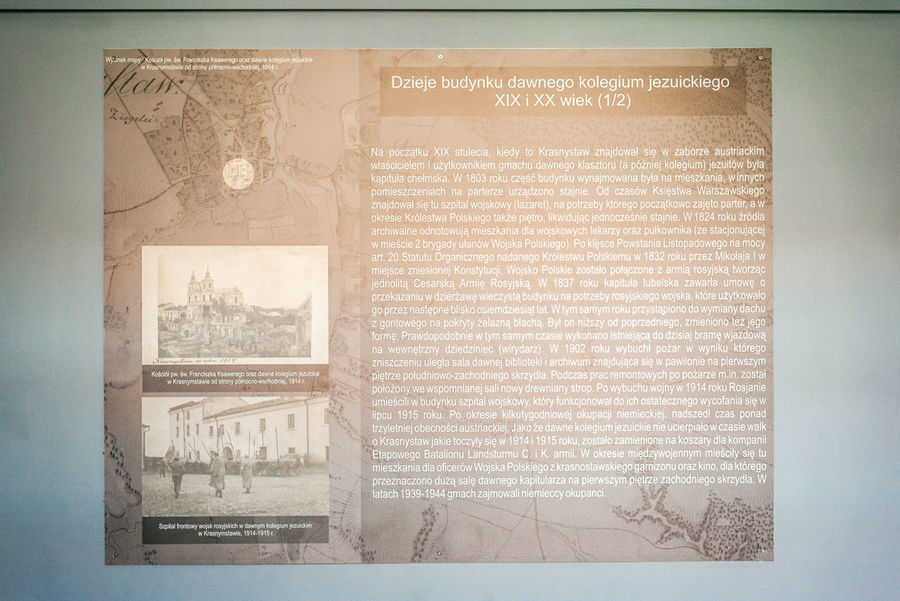 Wycinek mapy - Kościół pw. św. Franciszka Ksawerego oraz dawne kolegium jezuickie
w Krasnymstawie od strony północno-wschodniej, 1914 r.
Dzieje budynku dawnego kolegium jezuickiego
XIX i XX wiek (1/2)
Na początku XIX stulecia, kiedy to Krasnystaw znajdował się w zaborze austriackim
właścicielem i użytkownikiem gmachu dawnego klasztoru (a później kolegium) jezuitów była
kapituła chełmska. W 1803 roku część budynku wynajmowana była na mieszkania, w innych
pomieszczeniach na parterze urządzono stajnie. Od czasów Księstwa Warszawskiego
znajdował się tu szpital wojskowy (lazaret), na potrzeby którego początkowo zajęto parter, a w
okresie Królestwa Polskiego także piętro, likwidując jednocześnie stajnie. W 1824 roku źródła
archiwalne odnotowują mieszkania dla wojskowych lekarzy oraz pułkownika (ze stacjonującej
w mieście 2 brygady ułanów Wojska Polskiego). Po klęsce Powstania Listopadowego na mocy
art. 20 Statutu Organicznego nadanego Królestwu Polskiemu w 1832 roku przez Mikołaja I w
miejsce zniesionej Konstytucji, Wojsko Polskie zostało połączone z armią rosyjską tworząc
jednolitą Cesarską Armię Rosyjską. W 1837 roku kapituła lubelska zawarła umowę o
przekazaniu w dzierżawę wieczystą budynku na potrzeby rosyjskiego wojska, które użytkowało
go przez następne blisko osiemdziesiąt lat. W tym samym roku przystąpiono do wymiany dachu
z gontowego na pokryty żelazną blachą. Był on niższy od poprzedniego, zmieniono też jego
formę. Prawdopodobnie w tym samym czasie wykonano istniejącą do dzisiaj bramę wjazdową
na wewnętrzny dziedziniec (wirydarz). W 1902 roku wybuchł pożar w wyniku którego
zniszczeniu uległa sala dawnej biblioteki i archiwum znajdująca się w pawilonie na pierwszym
piętrze południowo-zachodniego skrzydła. Podczas prac remontowych po pożarze m.in. został
położony we wspomnianej sali nowy drewniany strop. Po wybuchu wojny w 1914 roku Rosjanie
umieścili w budynku szpital wojskowy, który funkcjonował do ich ostatecznego wycofania się w
lipcu 1915 roku. Po okresie kilkutygodniowej okupacji niemieckiej, nadszedł czas ponad
trzyletniej obecności austriackiej. Jako że dawne kolegium jezuickie nie ucierpiało w czasie walk
o Krasnystaw jakie toczyły się w 1914 i 1915 roku, zostało zamienione na koszary dla kompanii
Etapowego Batalionu Landsturmu C. i K. armii. W okresie międzywojennym mieściły się tu
mieszkania dla oficerów Wojska Polskiego z krasnostawskiego garnizonu oraz kino, dla którego
przeznaczono dużą salę dawnego kapitularza na pierwszym piętrze zachodniego skrzydła. W
latach 1939-1944 gmach zajmowali niemieccy okupanci.
Krasnystaw w roku 1914
Kościół pw. św. Franciszka Ksawerego oraz dawne kolegium jezuickie
w Krasnymstawie od strony północno-wschodniej, 1914 r.
Szpital frontowy wojsk rosyjskich w dawnym kolegium jezuickim
w Krasnymstawie, 1914-1915 r.